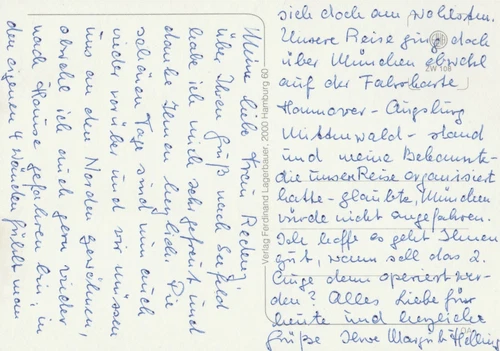 Meine liebe Frau Redering,
über Ihren Gruß nach Seefeld
habe ich mich sehr gefreut und
danke Ihnen herzlich. Die
schönen Tage sind nun auch
wieder vorüber und wir müssen
uns an den Norden gewöhnen,
obwohl ich auch gern wieder
nach Hause gefahren bin; in
den eigenen 4 Wänden fühlt man
Verlag Ferdinand Lagerbauer, 2000 Hamburg 60
sich doch am wohlsten.
Unsere Reise ging doch
über München obwohl
auf der Fahrkarte
ZW 108
Hannover - Augsburg
Mittenwald - stand
und meine Bekannte -
die unsere Reise organisiert
hatte - glaubte, München
würde nicht angefahren.
Ich hoffe es geht Ihnen
gut, wann soll das 2.
Auge denn operiert wer-
den? Alles Liebe für
heute und herzliche
Grüße Ihre Margrit Helling